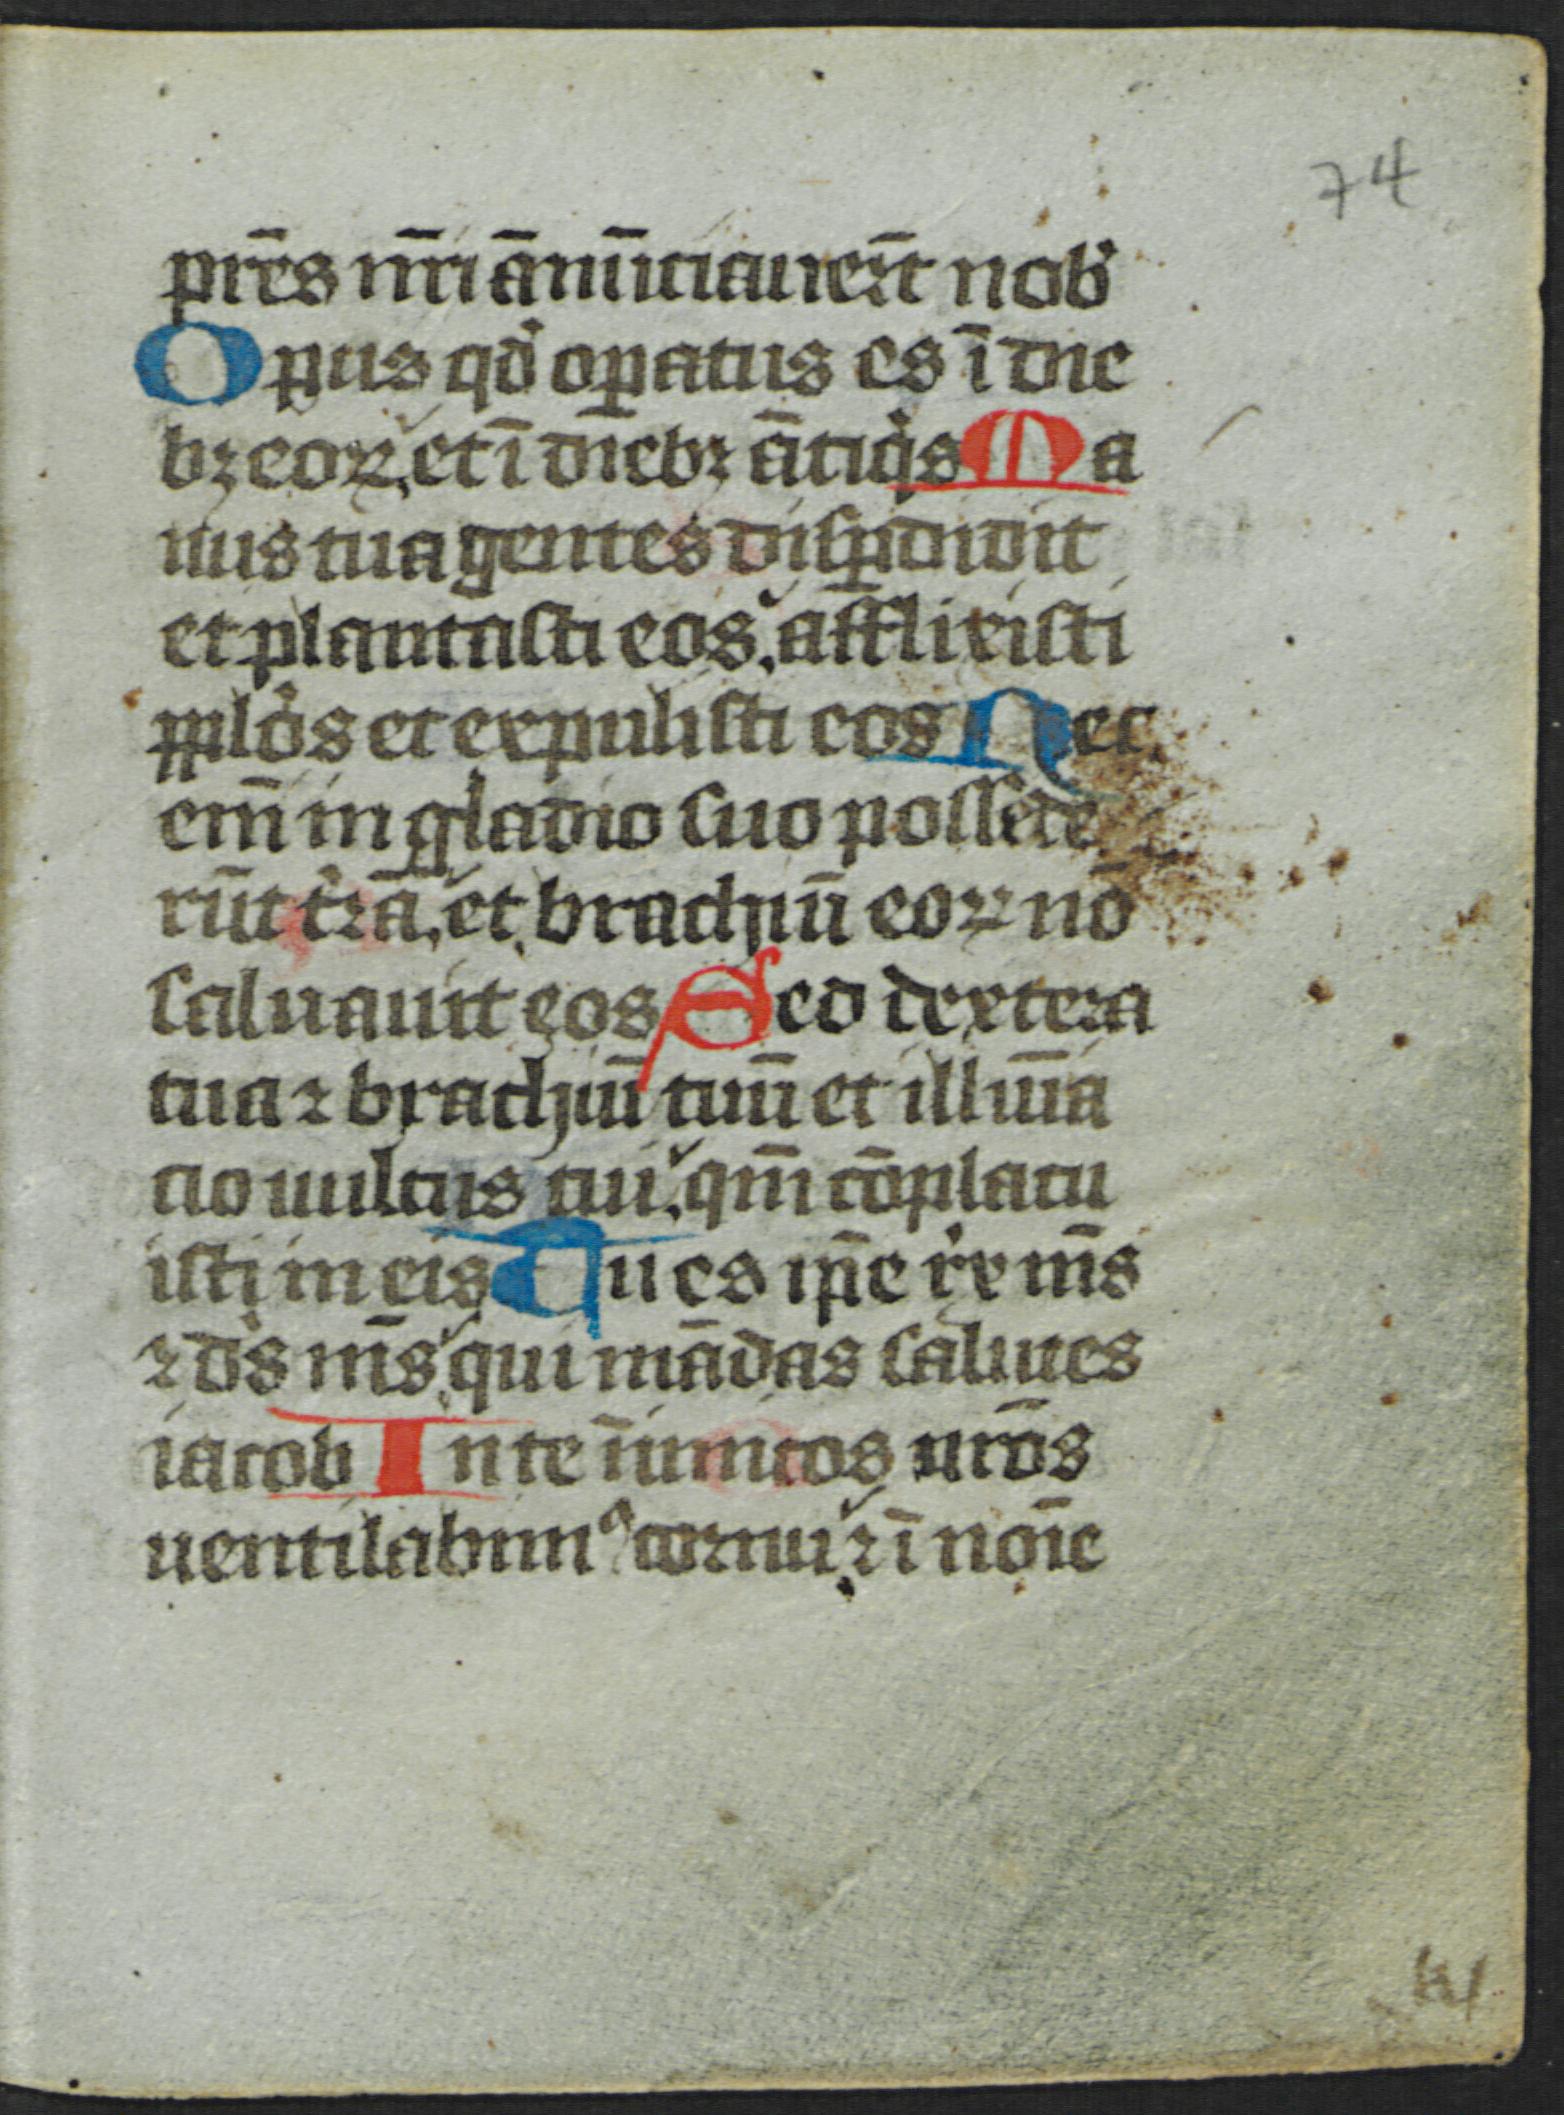 74
pr̄es nr̄i ānūciauer̄t nob̾
Opus qd̾ op̄atus es ī die
bꝫ eoꝝ, et ī dieb̄ꝫ ātiq̾s Ma
nus tua gentes disp̄didit
et plantasti eos, afflixisti
ppl̾os et expulisti eos Nec
em̄ in gladio suo possede
rūt t̾rā, et brachiū eoꝝ nō
saluauit eos Sed dextera
tua ⁊ brachiū tuū et illuı̄a
cio uultus tui, qm̄ cōplacu
isti in eis Tu es ip̄e rex m̄s
⁊ d̾s m̄s qui mādas salutes
iacob In te īimicos nr̄os
uentilabimꝰ cornu, ⁊ ī noīe